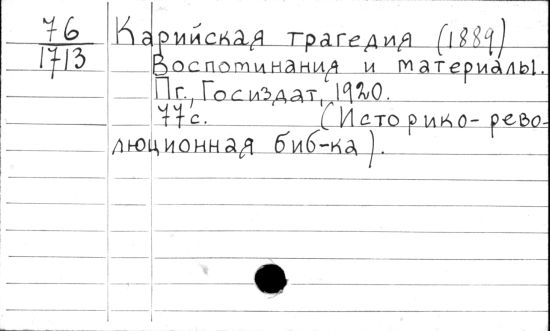 76
1713
Карийская трагедия (1889)
Воспоминания и материалы.
Пг., Госиздат, 1920.
77 с. (Историко-рево-
люционная биб-ка).